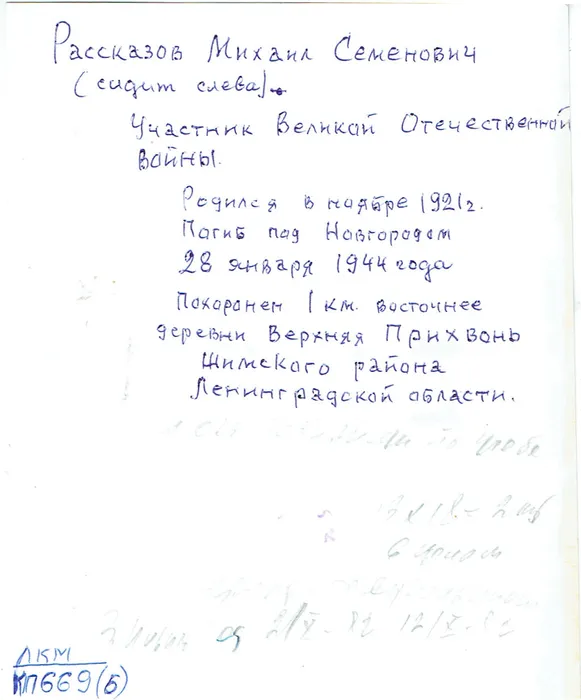 Рассказов Михаил Семенович
(сидит слева).
Участник Великой Отечественной
войны.
Родился в ноябре 1921г.
Погиб под Новгородом
28 января 1944 года
Похоронен 1 км. восточнее
деревни Верхняя Прихвонь
Шимского района
Ленинградской области.
13 x 18 - 2
6
2/X - 82 12/X - 82
ЛКМ
КП669(Б)